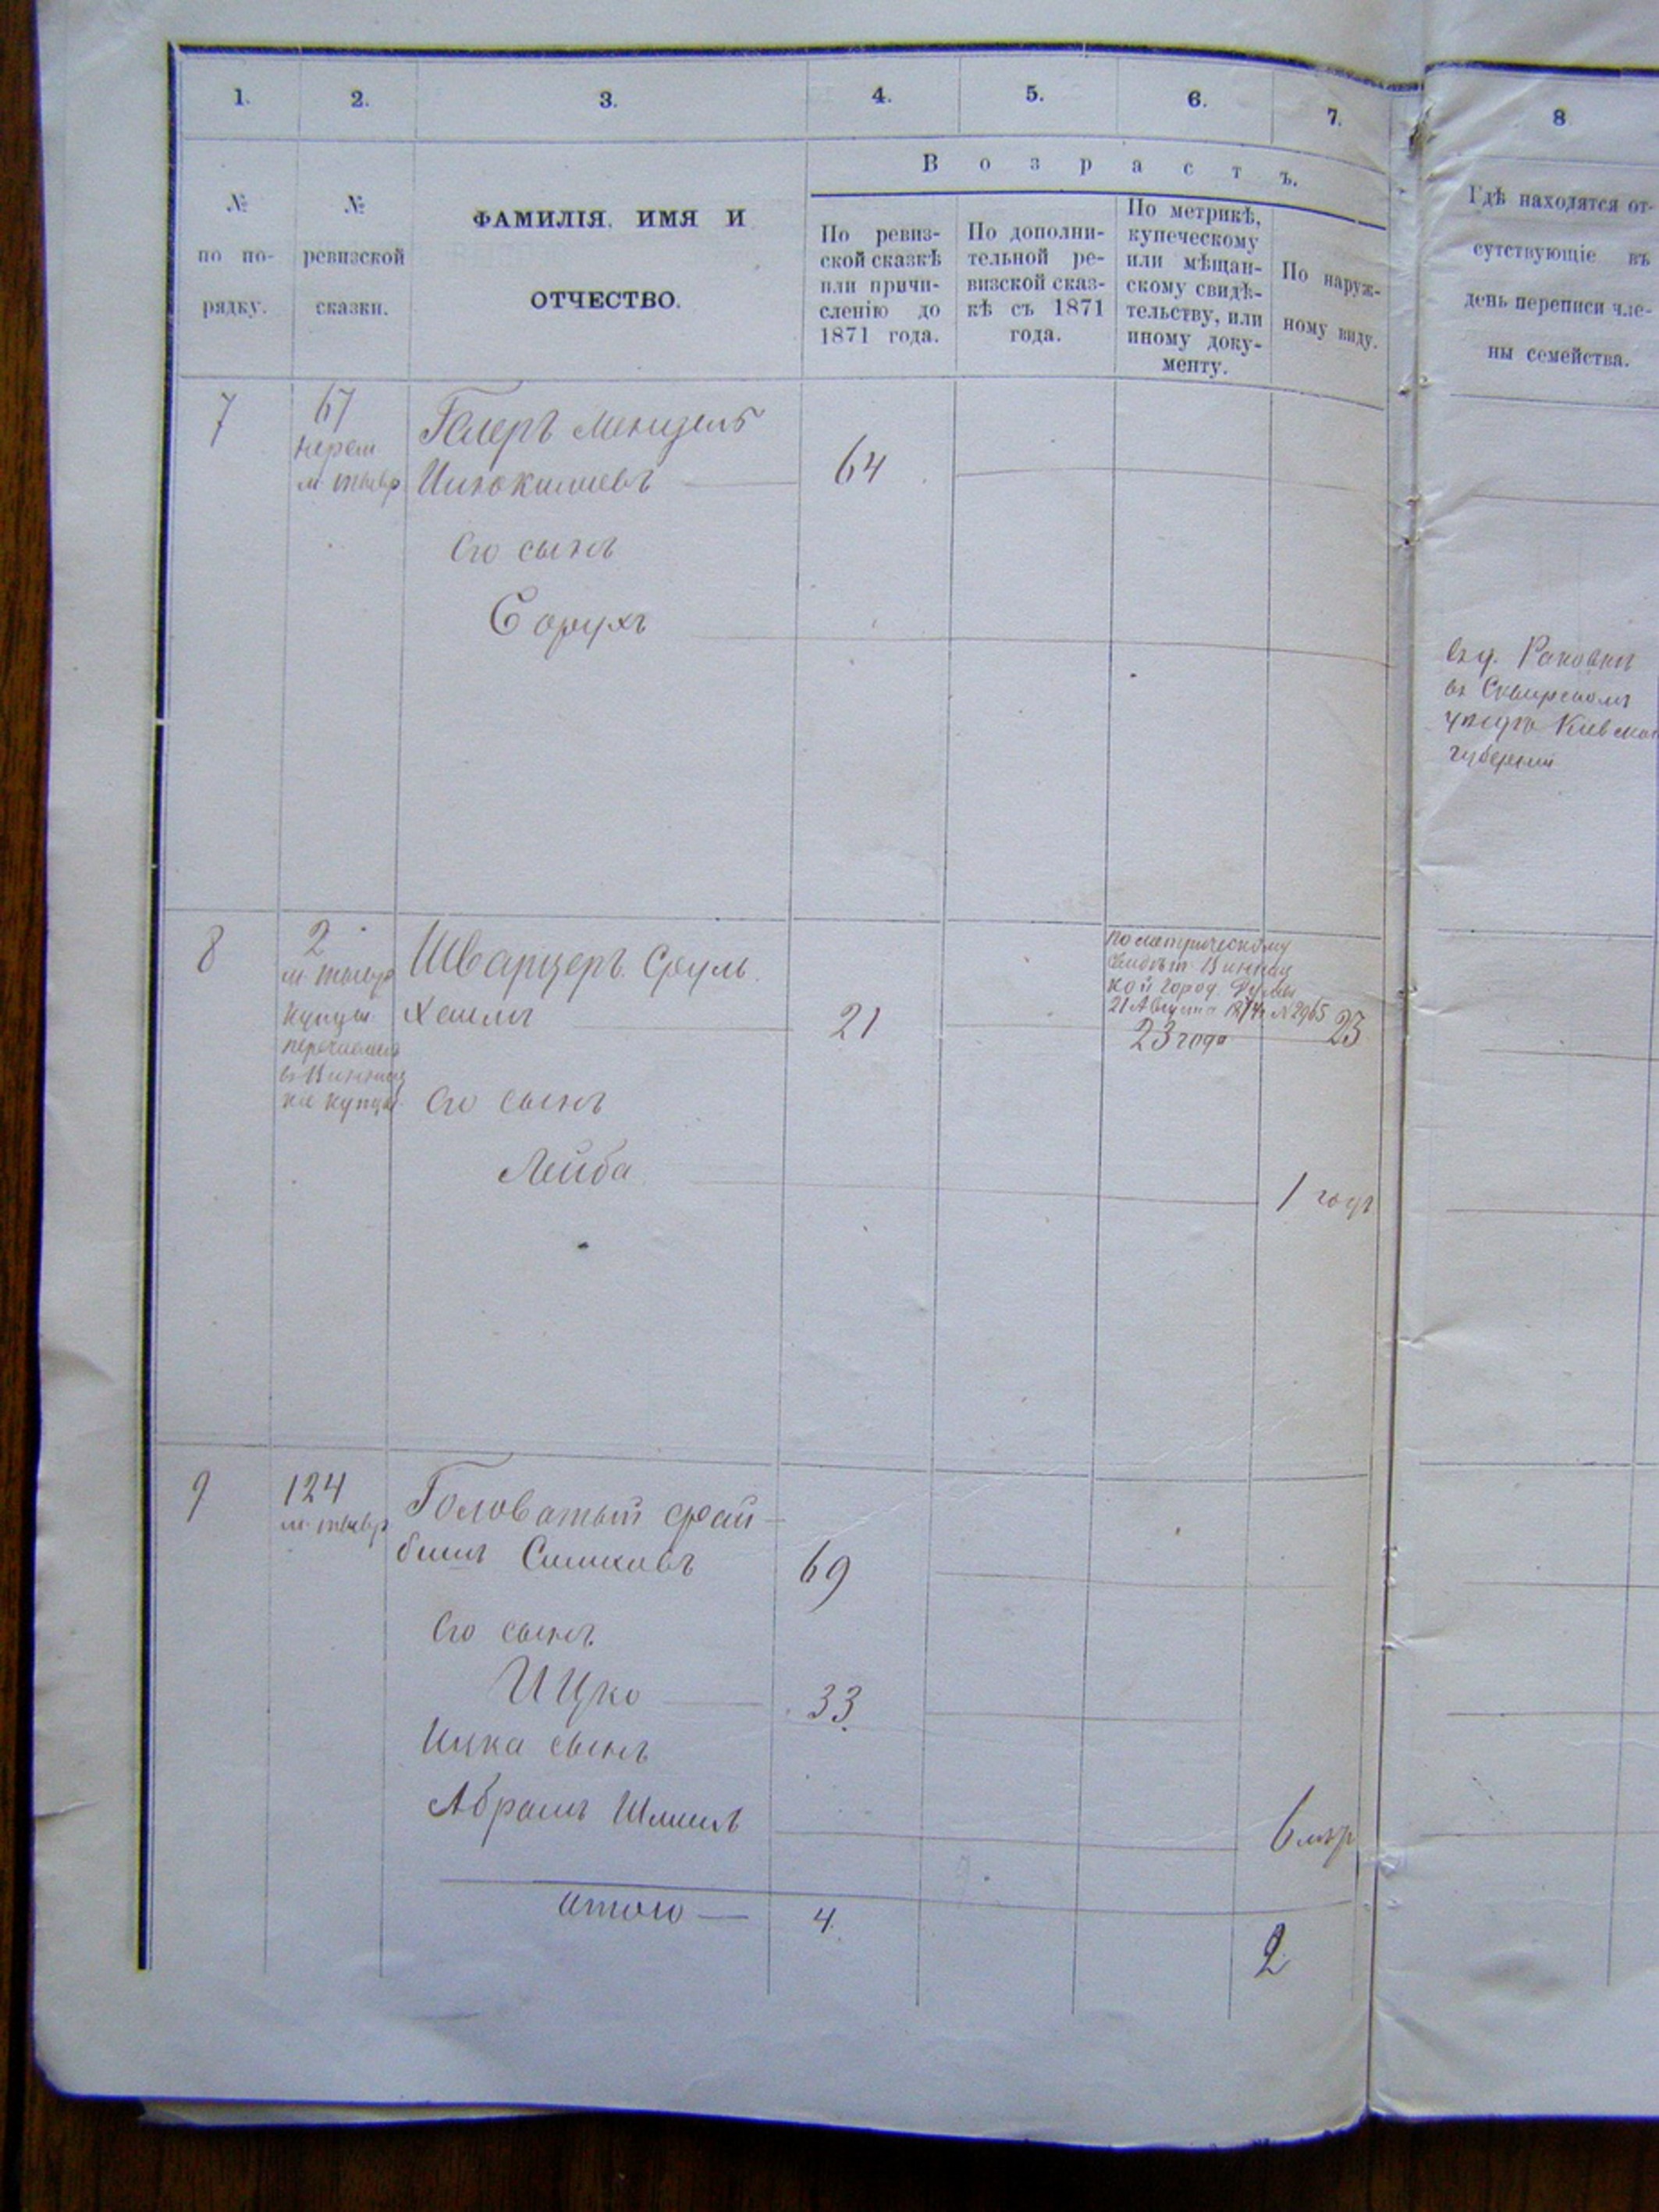 1. 2. 3. 4. 5. 6. 7. 8
Возрастъ.
№ по по-рядку.
№ ревизской сказки.
ФАМИЛІЯ, ИМЯ И
ОТЧЕСТВО.
По ревиз-
ской сказкѣ
или причи-
сленію до
1871 года.
По дополни-
тельной ре-
визской сказ-
кѣ съ 1871
года.
По метрикѣ,
купеческому
или мѣщан-
скому свидѣ-
тельству, или
иному доку-
менту.
По наруж-
ному виду.
Гдѣ находятся от-
сутствующіе въ
день переписи чле-
ны семейства.
7
67
м. тывр
Мендель
64
Его сынъ
Борухъ
Раковки
въ Сквирскомъ
уѣздѣ Киевской
губерніи
8
2
м. тывр
купцы
Шварцеръ Сруль
Хаимъ
21
по метрическому
свидѣт. Винниц
кой город. Думы
21 Августа 1874 г №2965
23 года
23
Его сынъ
Лейба
1 годъ
9
124
м. тывр
Головатый Фай
бишъ
69
Его сынъ
Ицко
33
Ицка сынъ
Абрамъ Шмиль
6 мѣр
Итого
4
2